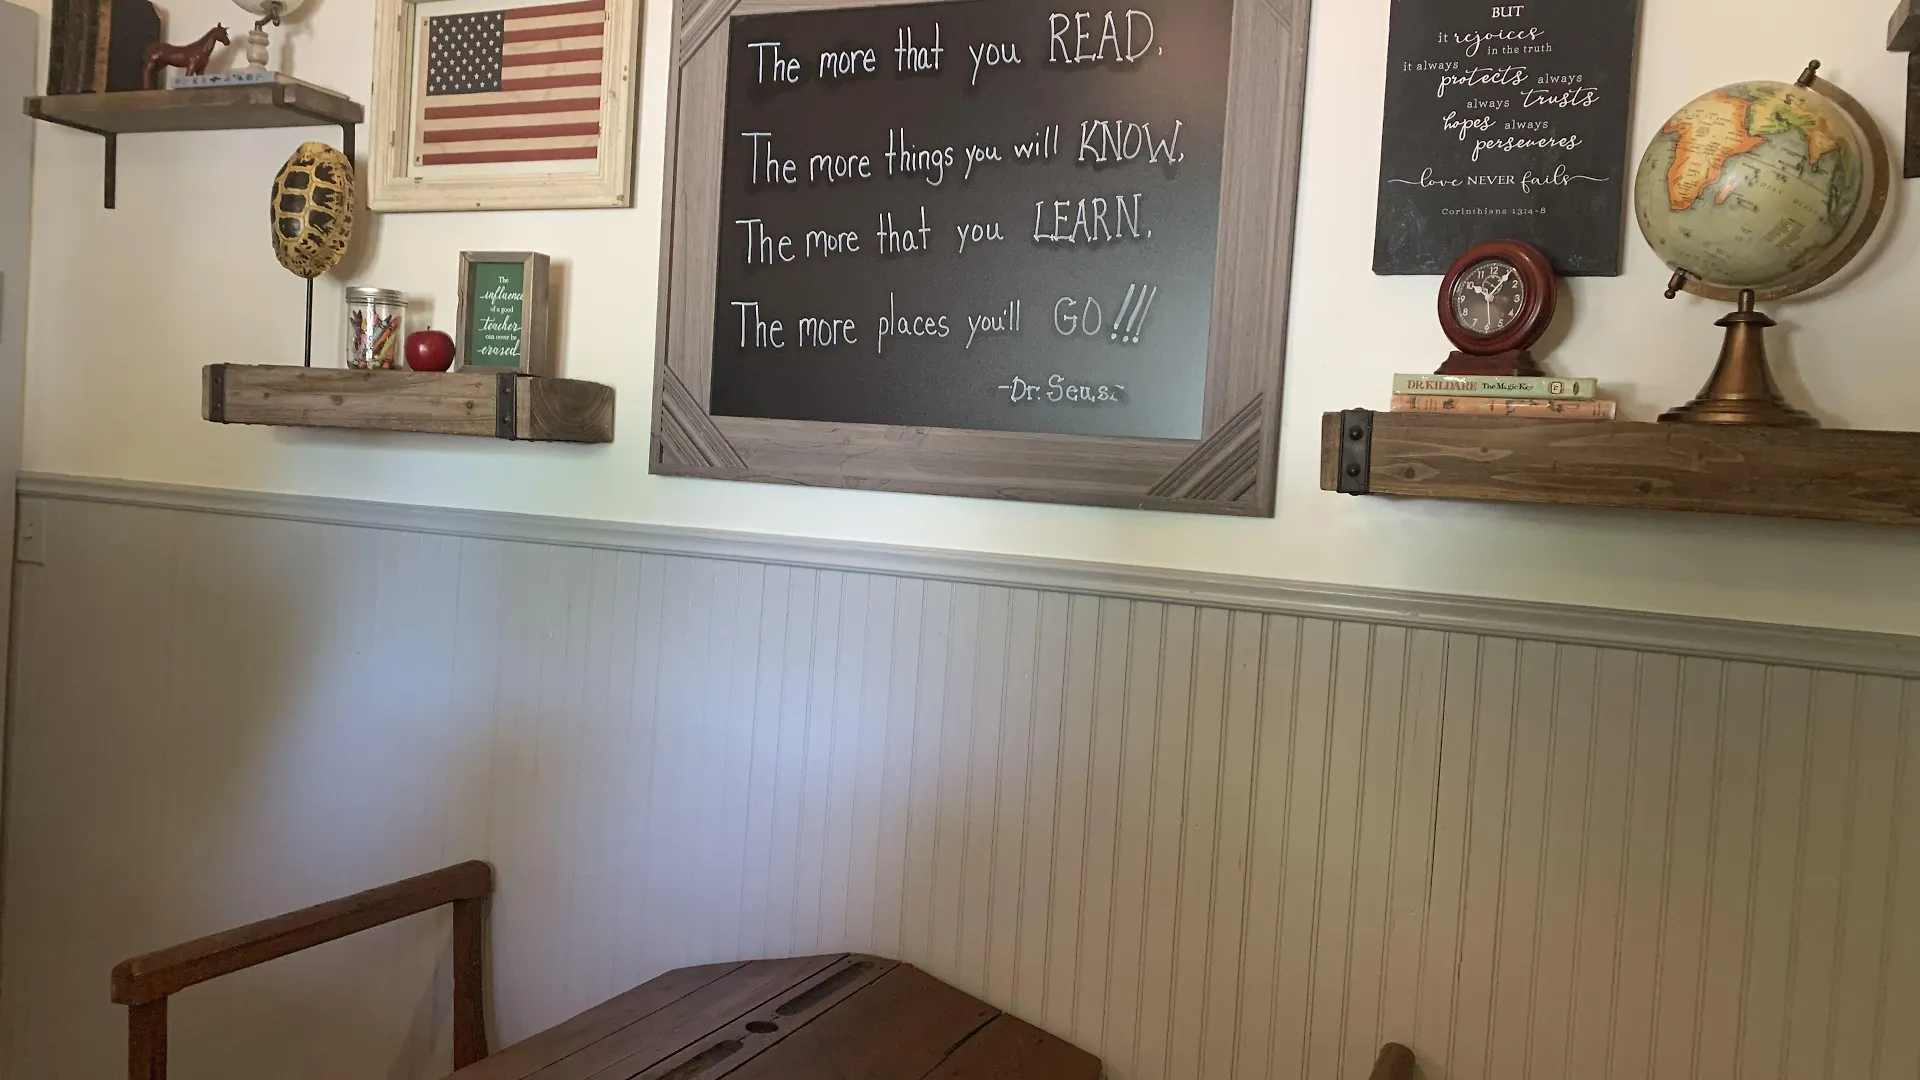 The more that you READ,
The more things you will KNOW,
The more that you LEARN,
The more places you'll GO!!!
-Dr. Seuss-
The
influence
of a good
teacher
can never be
erased
BUT
it rejoices
in the truth
it always
protects always
always trusts
hopes always
perseveres
love NEVER fails
Corinthians 13:4-8
11 12 1
10 2
9 3
8 4
7 6 5
DR. KILDARE The Magic Key